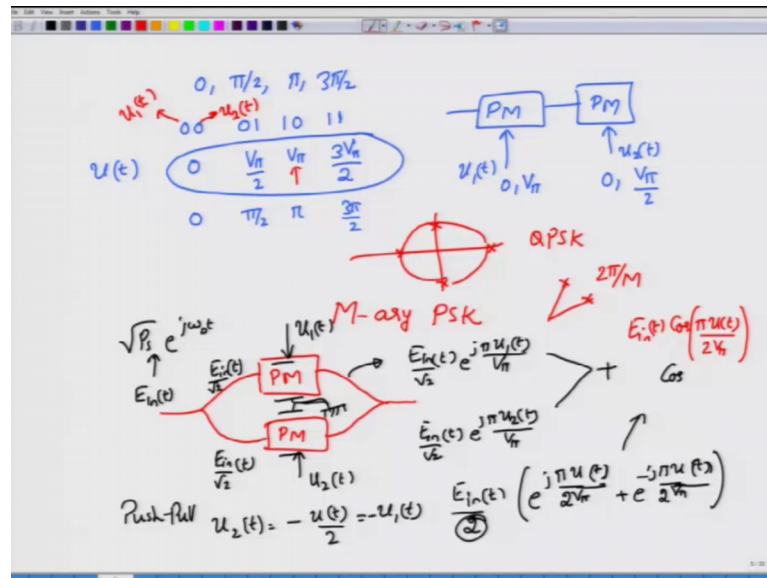 File Edit View Insert Actions Tools Help
0, π/2, π, 3π/2
u₁(t) u₂(t)
00 01 10 11
u(t) 0 Vπ/2 Vπ 3Vπ/2
0 π/2 π 3π/2
PM PM
u₁(t) u₂(t)
0, Vπ 0, Vπ/2
QPSK
M-ary PSK
2π/M
√Ps e^{jω₀t}
E_in(t)
u₁(t)
E_in(t)/√2
PM
PM
E_in(t)/√2
u₂(t)
E_in(t)/√2 e^{jπu₁(t)/Vπ}
+
E_in(t)/√2 e^{jπu₂(t)/Vπ}
E_in(t) Cos(πu(t)/2Vπ)
Cos
Push-Pull u₂(t) = - u(t)/2 = -u₁(t)
E_in(t)/2 (e^{jπu(t)/2Vπ} + e^{-jπu(t)/2Vπ})